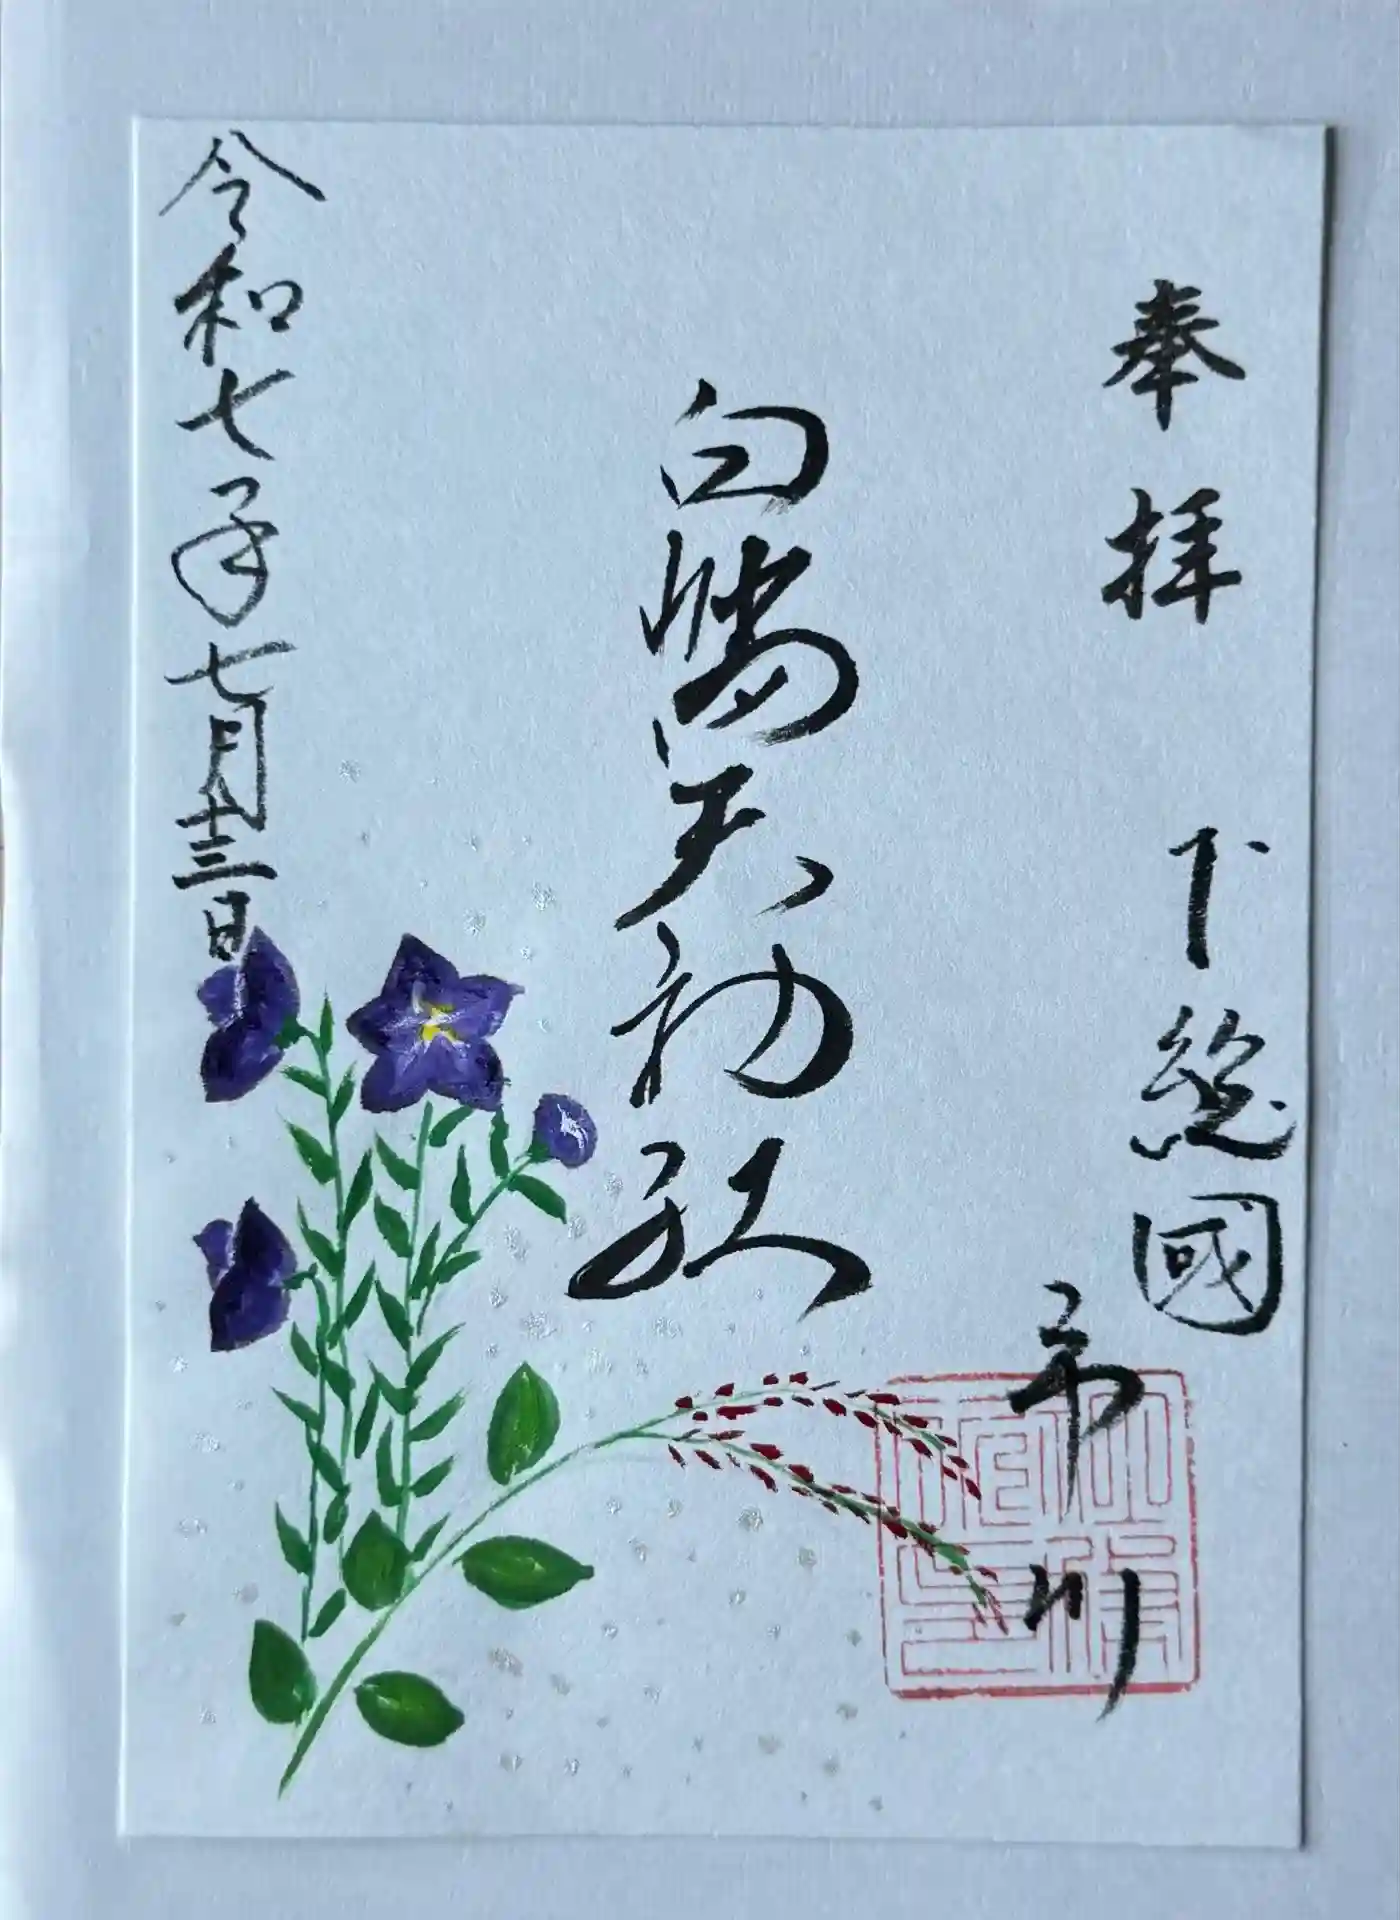 奉拝
下総國
市川
白幡天神社
令和七年七月十三日